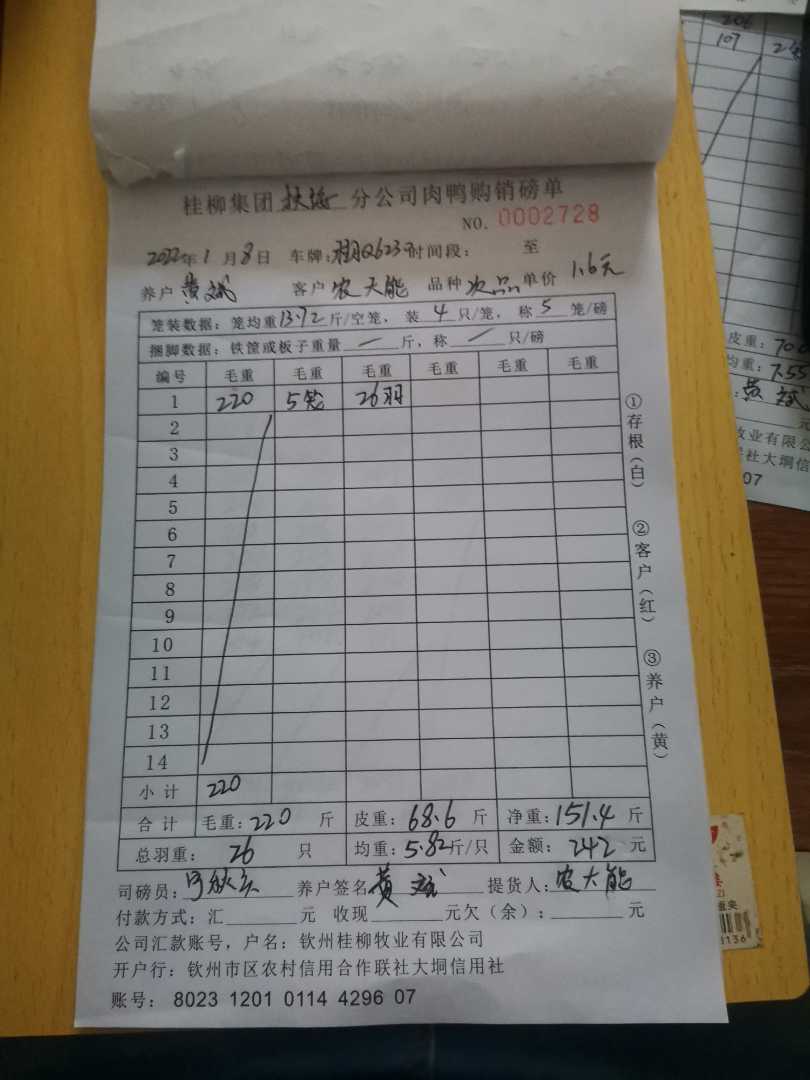 桂柳集团 分公司肉鸭购销磅单
NO. 0002728
2022年1月8日 车牌: 时间段: 至
养户 黄斌 客户 农大能 品种 次品 单价 1.6元
笼装数据: 笼均重13.72斤/空笼, 装 4 只/笼, 称 5 笼/磅
捆脚数据: 铁筐或板子重量 / 斤, 称 / 只/磅
编号 毛重 毛重 毛重 毛重 毛重 毛重
1 220 5笼 26羽
2
3
4
5
6
7
8
9
10
11
12
13
14
小计 220
合计 毛重: 220 斤 皮重: 68.6 斤 净重: 151.4 斤
总羽重: 26 只 均重: 5.82斤/只 金额: 242 元
司磅员: 养户签名 黄斌 提货人: 农大能
付款方式: 汇 元 收现 元欠(余): 元
公司汇款账号, 户名: 钦州桂柳牧业有限公司
开户行: 钦州市区农村信用合作联社大垌信用社
账号: 8023 1201 0114 4296 07
①存根(白)
②客户(红)
③养户(黄)
107
皮重: 70
均重: 7.55
元
牧业有限公
联社大垌信
07